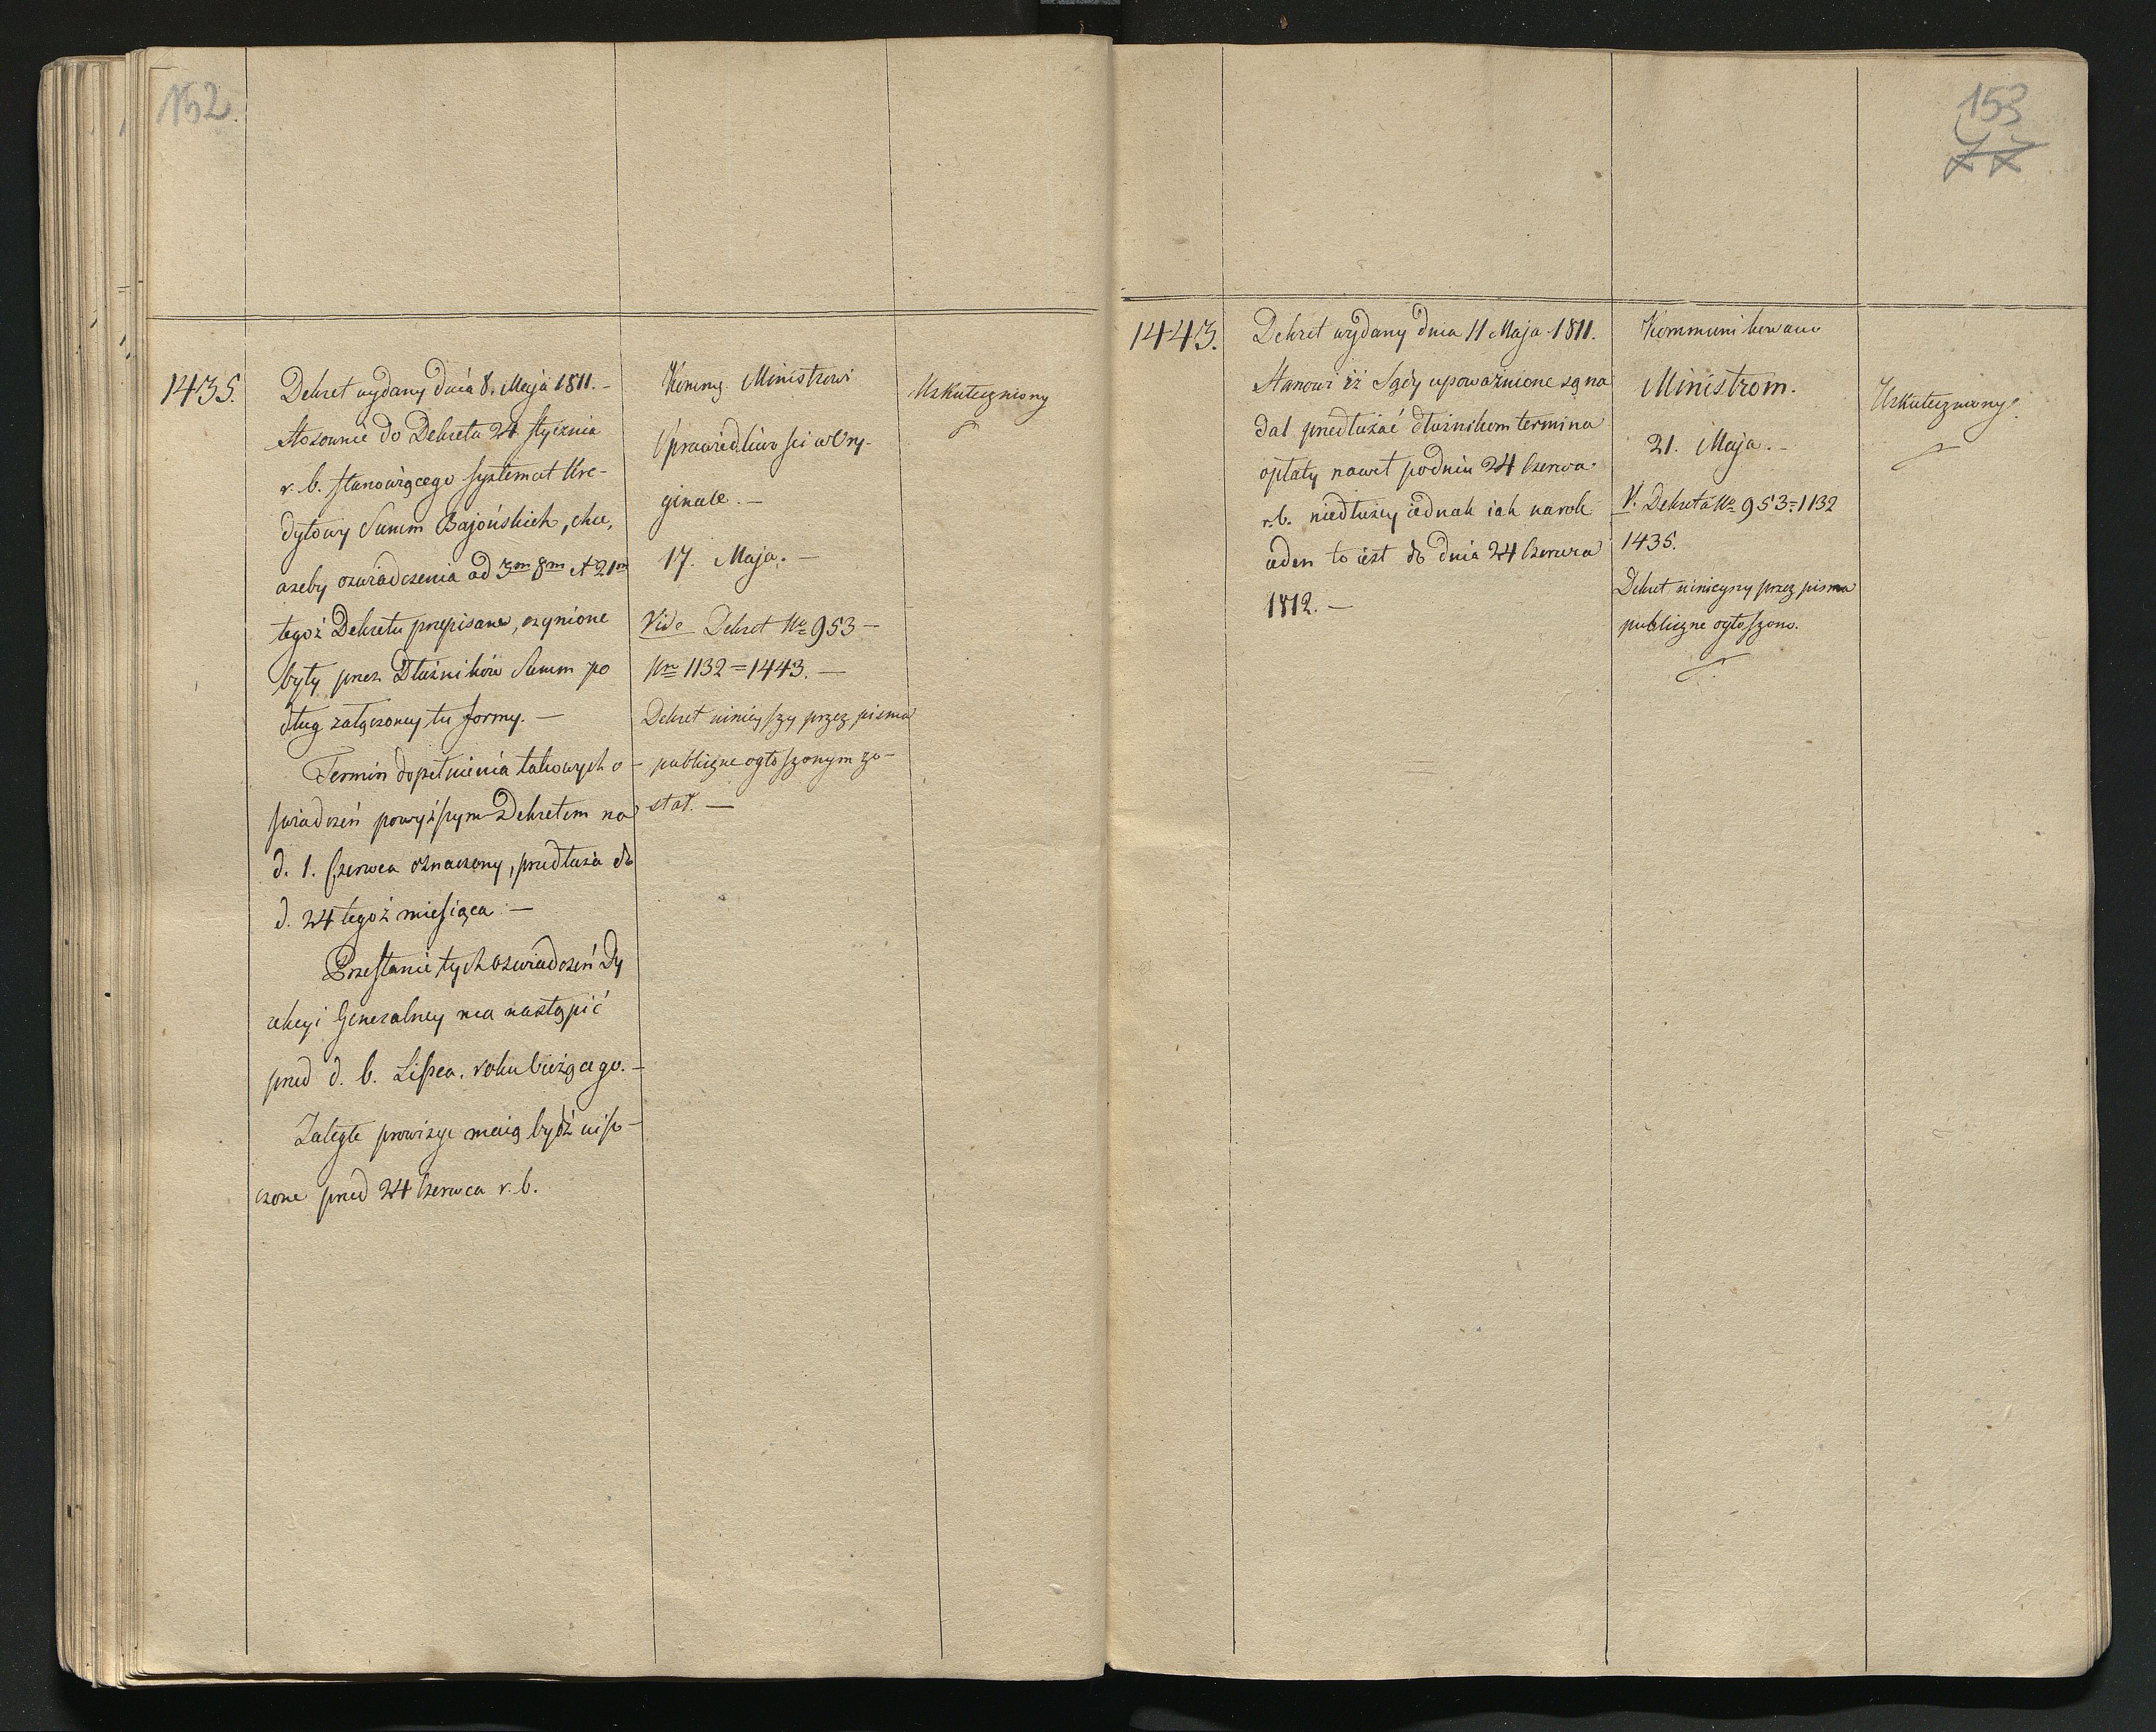 152.
1435.
Dekret wydany dnia 8. Maja 1811. –
stosownie do Dekretu 24 stycznia
r. b. stanowiącego systemat Kre-
dytowy Summ Bajońskich, chce,
ażeby oswiadczenia ad 3m 8m et 21m
tegoż Dekretu przepisane, czynione
były przez Dłużników Summ po
dług załączoney tu formy. –
Termin dopełnienia takowych o-
swiadczeń powyższym Dekretem na
d. 1. Czerwca oznaczony, przedłuża do
d. 24 tegoż miesiąca. –
Przesłanie tych oswiadczeń Dy
rekcyi Generalney ma nastąpić
przed d. 6. Lipca. roku bieżącego. –
Zaległe prowizye maią bydź uisz-
czone przed 24 Czerwca r. b.
Komug. Ministrowi
Sprawiedliwości w Ory-
ginale. –
17. Maja. –
Vide Dekret No 953 –
pr 1132 = 1443. –
Dekret ninieyszy przez pisma
publiczne ogłoszonym zo-
stał. –
Uskuteczniony
153
77
1443.
Dekret wydany dnia 11 Maja 1811.
Stanowi iż Sądy upoważnione są na
dal przedłużać dłużnikom termina
opłaty nawet po dniu 24 Czerwca
r.b. niedłużey iednak iak na rok
ieden to iest do dnia 24 Czerwca
1812. –
Kommunikowano
Ministrom.
21. Maja. –
V. Dekreta No 953 = 1132
1435.
Dekret ninieyszy przez pisma
publiczne ogłoszono.
Uskuteczniony.